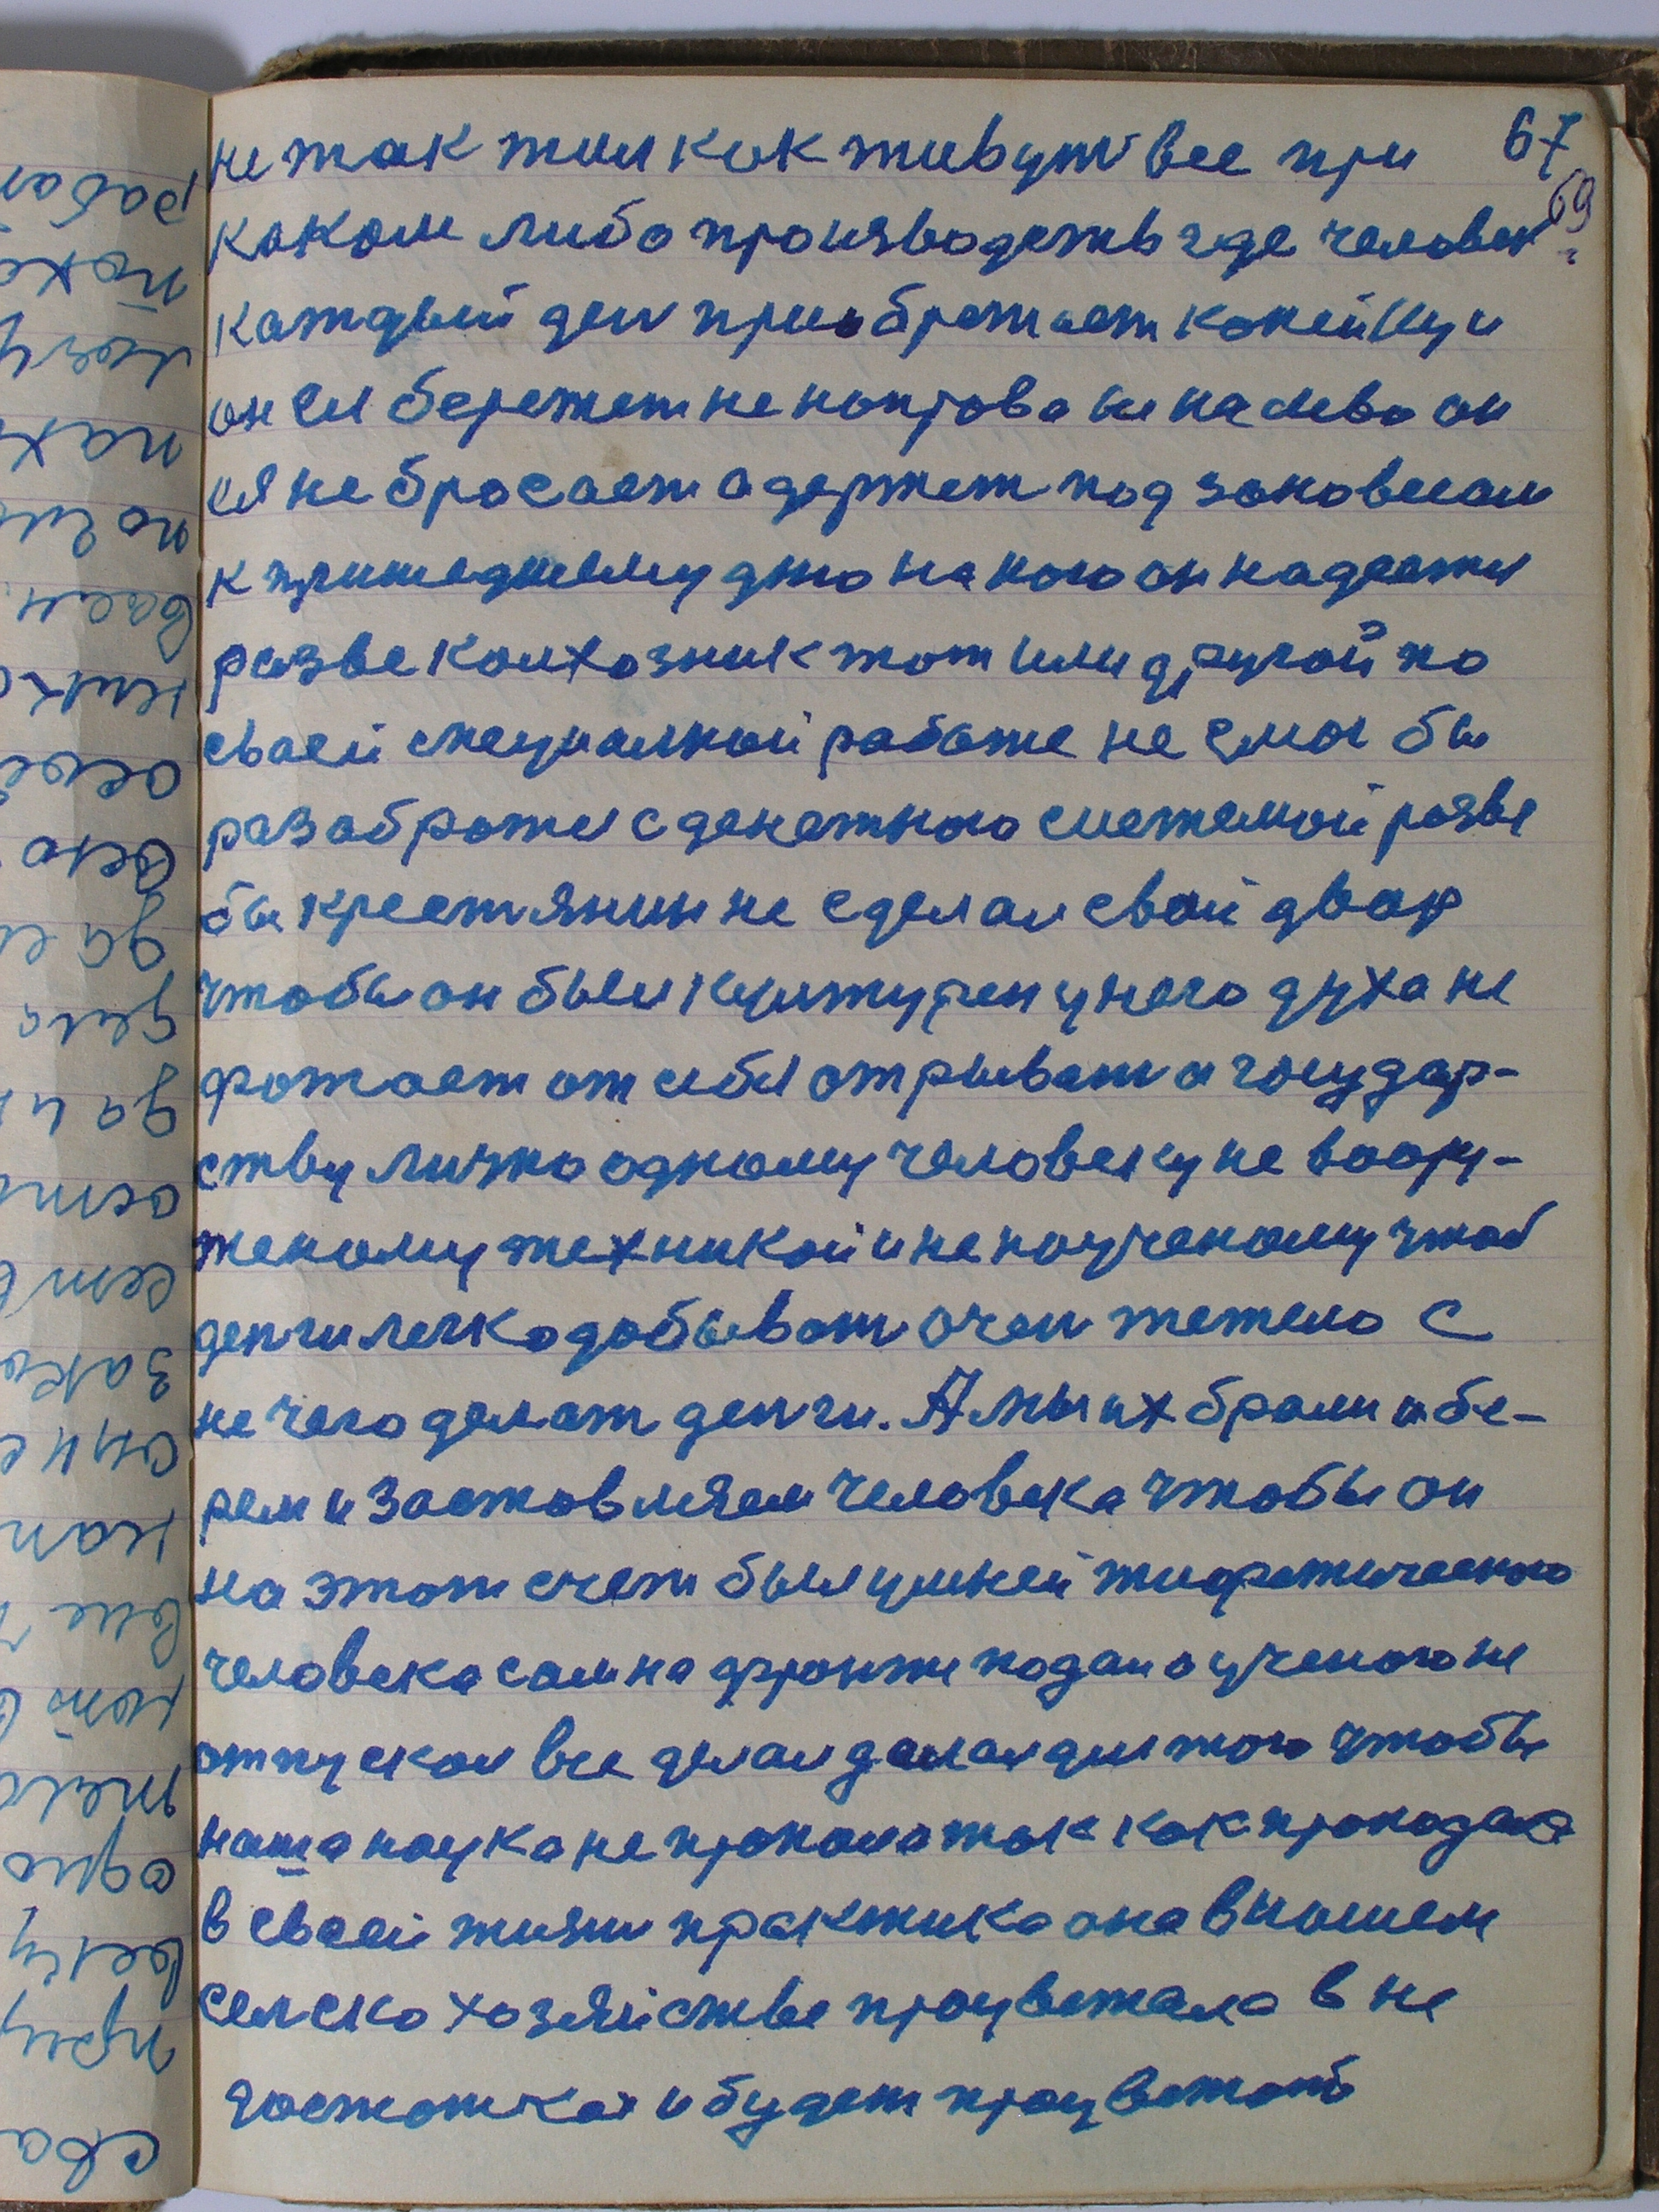 67
69
не так жил как живут все при
каком либо производств где человек
каждый ден приобретает копейку и
он ея бережет не направо не налево он
ея не бросает а держет под зановесам
к пришедшему дню на кого он надеется
разве колхозник тот или другой по
сваей специалной работе не смог бы
разабротся с денежного системой разве
бы крестянин не сделал свой двор
чтобы он был културен у него духа не
фатает от себя отрыват а государ-
ству лично одному человеку не воору-
женому техникой и не наученому чтоб
денги легко добыват очен тежело с
не чего делат денги. А мы их брали и бе-
рем и заставляем человека чтобы он
на этот счет был умней тиоретического
человека сам на фронте подал а ученого не
отпускал все делал для того чтобы
наша наука не пропала так как пропадала
в сваей жизни практика она в нашем
селско хозяйстве процветала в не
достатках и будет процветать
рабо
пахо
нах
осно
сва